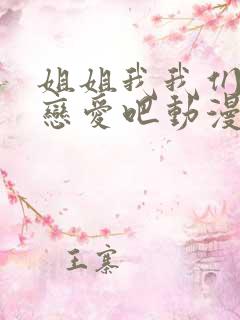 姐姐我我们
恋爱吧動漫
王寨